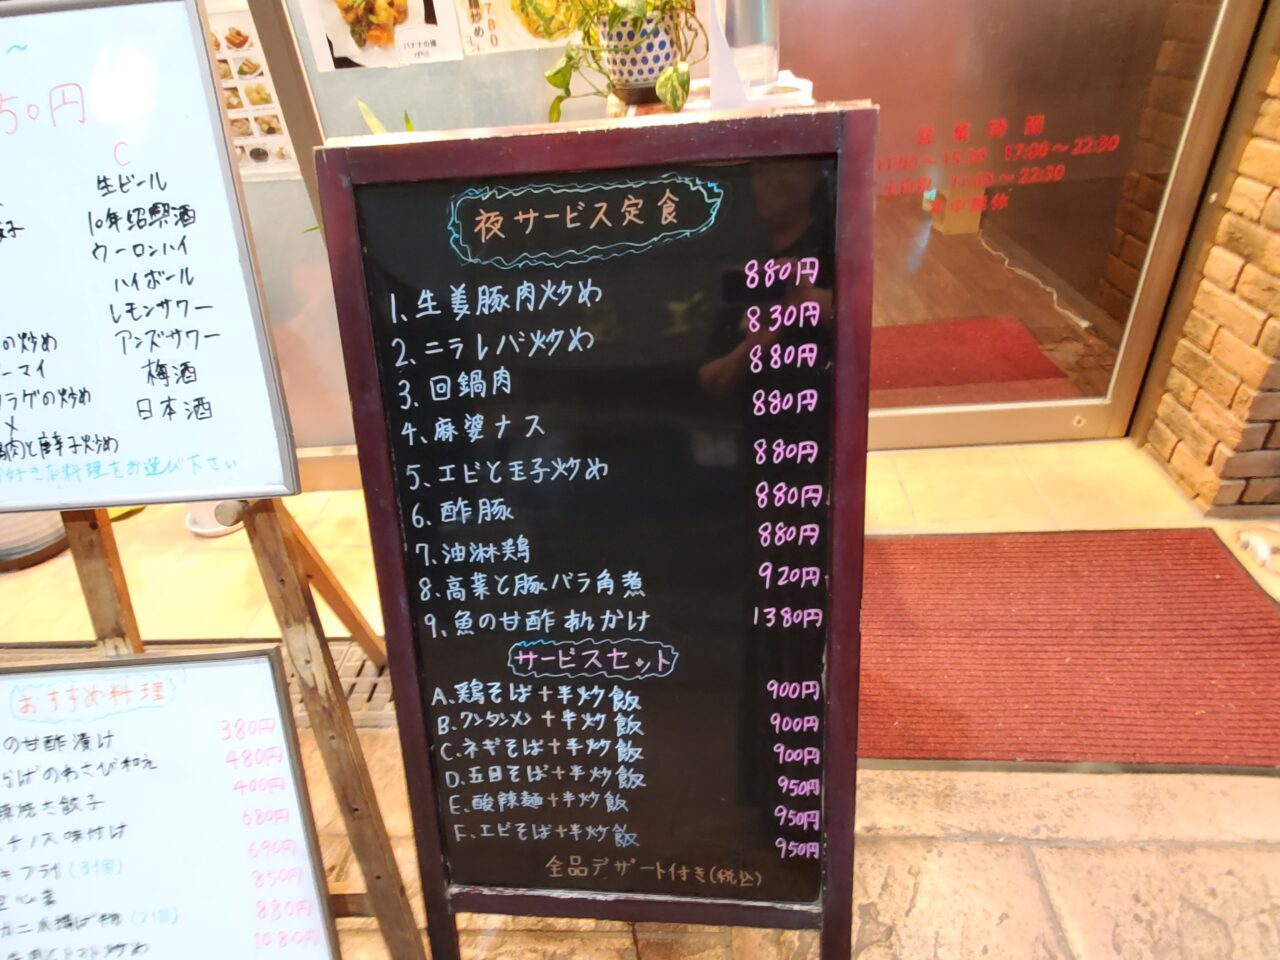 50円
C
生ビール
10年紹興酒
ウーロンハイ
ハイボール
レモンサワー
アンズサワー
梅酒
日本酒
の炒め
ラゲの炒め
お好きな料理をお選び下さい
おすすめ料理
の甘酢漬け 380円
らげのわさび和え 480円
辣焼き餃子 400円
味付け 680円
キフライ(3個) 690円
空心菜 850円
カニ爪揚げ物(2個) 880円
トマト炒め 1080円
バナナの揚げ
夜サービス定食
1、生姜豚肉炒め 880円
2、ニラレバ炒め 830円
3、回鍋肉 880円
4、麻婆ナス 880円
5、エビと玉子炒め 880円
6、酢豚 880円
7、油淋鶏 880円
8、高菜と豚バラ角煮 920円
9、魚の甘酢あんかけ 1380円
サービスセット
A、鶏そば+半炒飯 900円
B、ワンタンメン+半炒飯 900円
C、ネギそば+半炒飯 900円
D、五目そば+半炒飯 950円
E、酸辣麺+半炒飯 950円
F、エビそば+半炒飯 950円
全品デザート付き(税込)
営業時間
11:00〜15:30 17:00〜22:30
土日祝 11:00〜22:30
年中無休